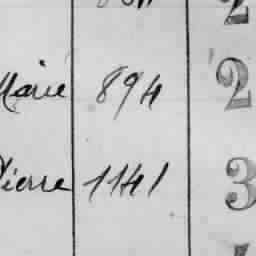 2
Marie 894 2
Pierre 1141 3